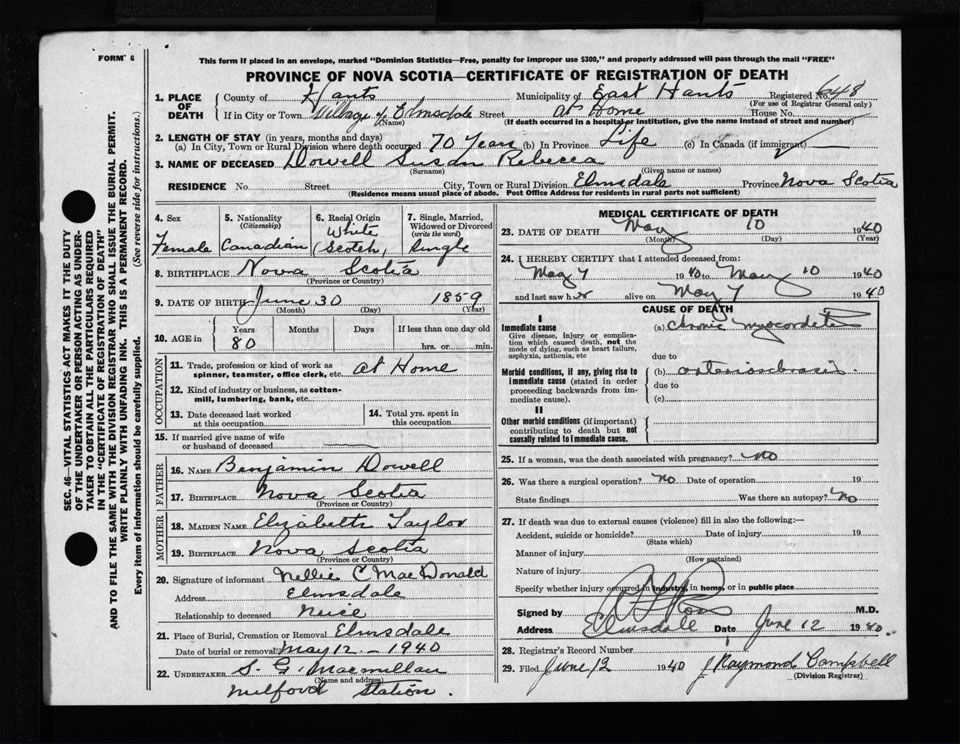 FORM 6
This form if placed in an envelope, marked "Dominion Statistics—Free, penalty for improper use $300," and properly addressed will pass through the mail "FREE"
PROVINCE OF NOVA SCOTIA—CERTIFICATE OF REGISTRATION OF DEATH
1. PLACE OF DEATH
County of Hants Municipality of East Hants Registered No. 648
(For use of Registrar General only)
If in City or Town Village of Elmsdale Street At Home House No.
(Name) (If death occurred in a hospital or institution, give the name instead of street and number)
2. LENGTH OF STAY (in years, months and days)
(a) In City, Town or Rural Division where death occurred 70 Years (b) In Province Life (c) In Canada (if immigrant)
3. NAME OF DECEASED Dowell Susan Rebecca
(Surname) (Given name or names)
RESIDENCE No. Street City, Town or Rural Division Elmsdale Province Nova Scotia
(Residence means usual place of abode. Post Office Address for residents in rural parts not sufficient)
SEC. 46—VITAL STATISTICS ACT MAKES IT THE DUTY
OF THE UNDERTAKER OR PERSON ACTING AS UNDER-
TAKER TO OBTAIN ALL THE PARTICULARS REQUIRED
IN THE "CERTIFICATE OF REGISTRATION OF DEATH"
AND TO FILE THE SAME WITH THE DIVISION REGISTRAR WHO SHALL ISSUE THE BURIAL PERMIT.
WRITE PLAINLY WITH UNFADING INK. THIS IS A PERMANENT RECORD.
Every item of information should be carefully supplied. (See reverse side for instructions.)
4. Sex
Female
5. Nationality
(Citizenship)
Canadian
6. Racial Origin
White
(Scotch)
7. Single, Married,
Widowed or Divorced
(write the word)
Single
8. BIRTHPLACE Nova Scotia
(Province or Country)
9. DATE OF BIRTH June 30 1859
(Month) (Day) (Year)
10. AGE in
Years Months Days If less than one day old
80 hrs. or min.
11. Trade, profession or kind of work as
spinner, teamster, office clerk, etc. At Home
12. Kind of industry or business, as cotton-
mill, lumbering, bank, etc.
13. Date deceased last worked
at this occupation
14. Total yrs. spent in
this occupation.
15. If married give name of wife
or husband of deceased
FATHER
16. NAME Benjamin Dowell
17. BIRTHPLACE Nova Scotia
(Province or Country)
MOTHER
18. MAIDEN NAME Elizabeth Taylor
19. BIRTHPLACE Nova Scotia
(Province or Country)
20. Signature of informant Nellie C MacDonald
Address Elmsdale
Relationship to deceased Neice
21. Place of Burial, Cremation or Removal Elmsdale
Date of burial or removal May 12 - 1940
22. UNDERTAKER S. G. Macmillan
(Name and Address)
Milford Station.
MEDICAL CERTIFICATE OF DEATH
23. DATE OF DEATH May 10 1940
(Month) (Day) (Year)
24. I HEREBY CERTIFY that I attended deceased from:
May 7 1940 to May 10 1940
and last saw her alive on May 7 1940
CAUSE OF DEATH
I
Immediate cause
Give disease, injury or complica-
tion which caused death, not the
mode of dying, such as heart failure,
asphyxia, asthenia, etc
(a) chronic myocarditis
due to
Morbid conditions, if any, giving rise to
immediate cause (stated in order
proceeding backwards from im-
mediate cause).
(b) arteriosclerosis
due to
(c)
II
Other morbid conditions (if important)
contributing to death but not
causally related to immediate cause.
25. If a woman, was the death associated with pregnancy? No
26. Was there a surgical operation? No Date of operation 19
State findings Was there an autopsy? No
27. If death was due to external causes (violence) fill in also the following:—
Accident, suicide or homicide? Date of injury 19
(State which)
Manner of injury
(How sustained)
Nature of injury
Specify whether injury occurred in industry, in home, or in public place
Signed by M.D.
Address Elmsdale Date June 12 1940
28. Registrar's Record Number
29. Filed June 12 1940 J Raymond Campbell
(Division Registrar)